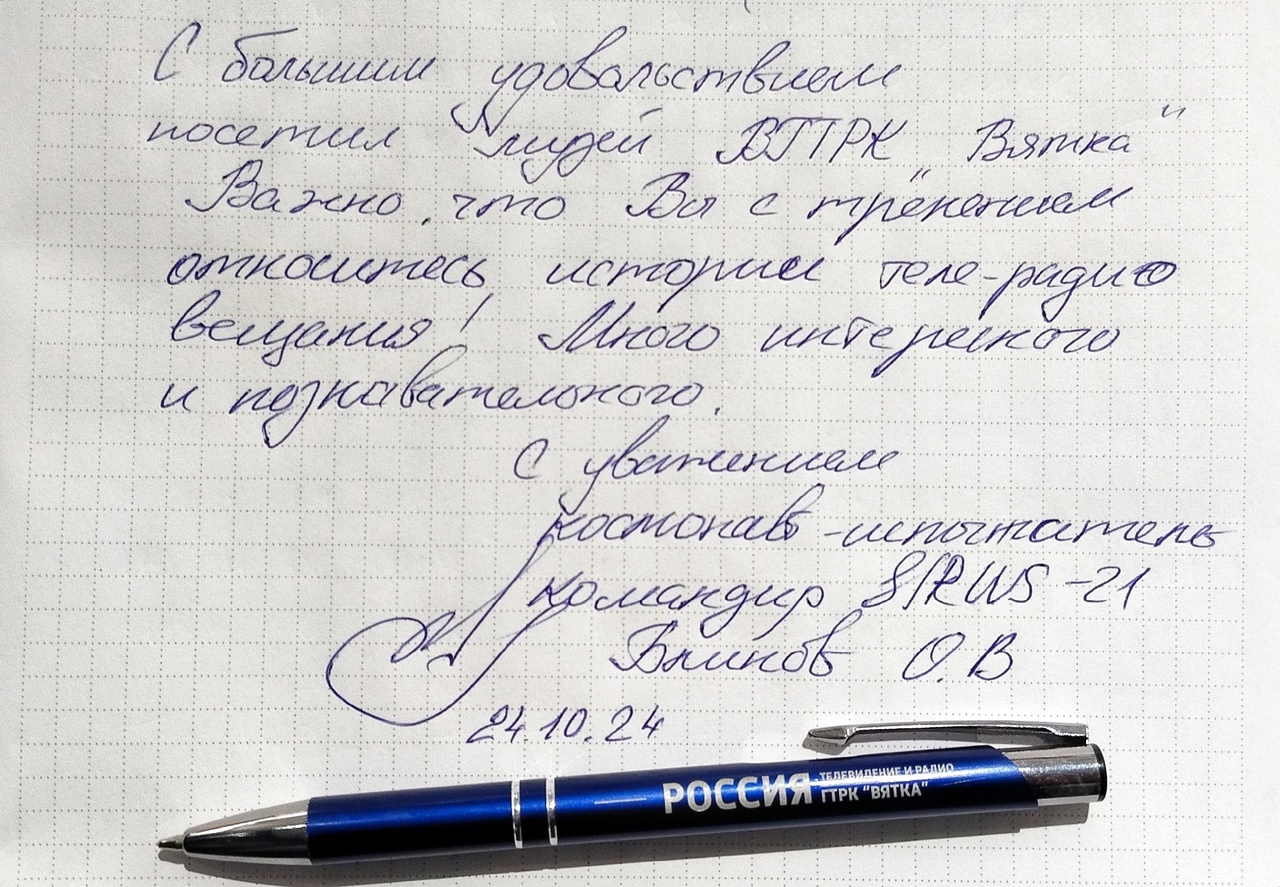 С большим удовольствием
посетил музей ВГТРК „Вятка"
Важно, что Вы с
относитесь истории теле-радио
вещания! Много интересного
и познавательного.
С уважением
космонавт-испытатель
командир SIRIUS-21
Блинов О.В
24.10.24
РОССИЯ
ТЕЛЕВИДЕНИЕ И РАДИО
ГТРК "ВЯТКА"